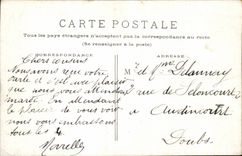 CARTE POSTALE
Tous les pays étrangers n'acceptent pas la correspondance au recto
(Se renseigner à la poste)
CORRESPONDANCE
ADRESSE
Chers cousins
Nous avons reçu votre
carte et c'est avec plaisir
que nous vous attendons
mardi En attendant
le plaisir de vous voir
nous vous embrassons
tous les
M et Mme
rue de Seloncourt
à
Audincourt
Doubs